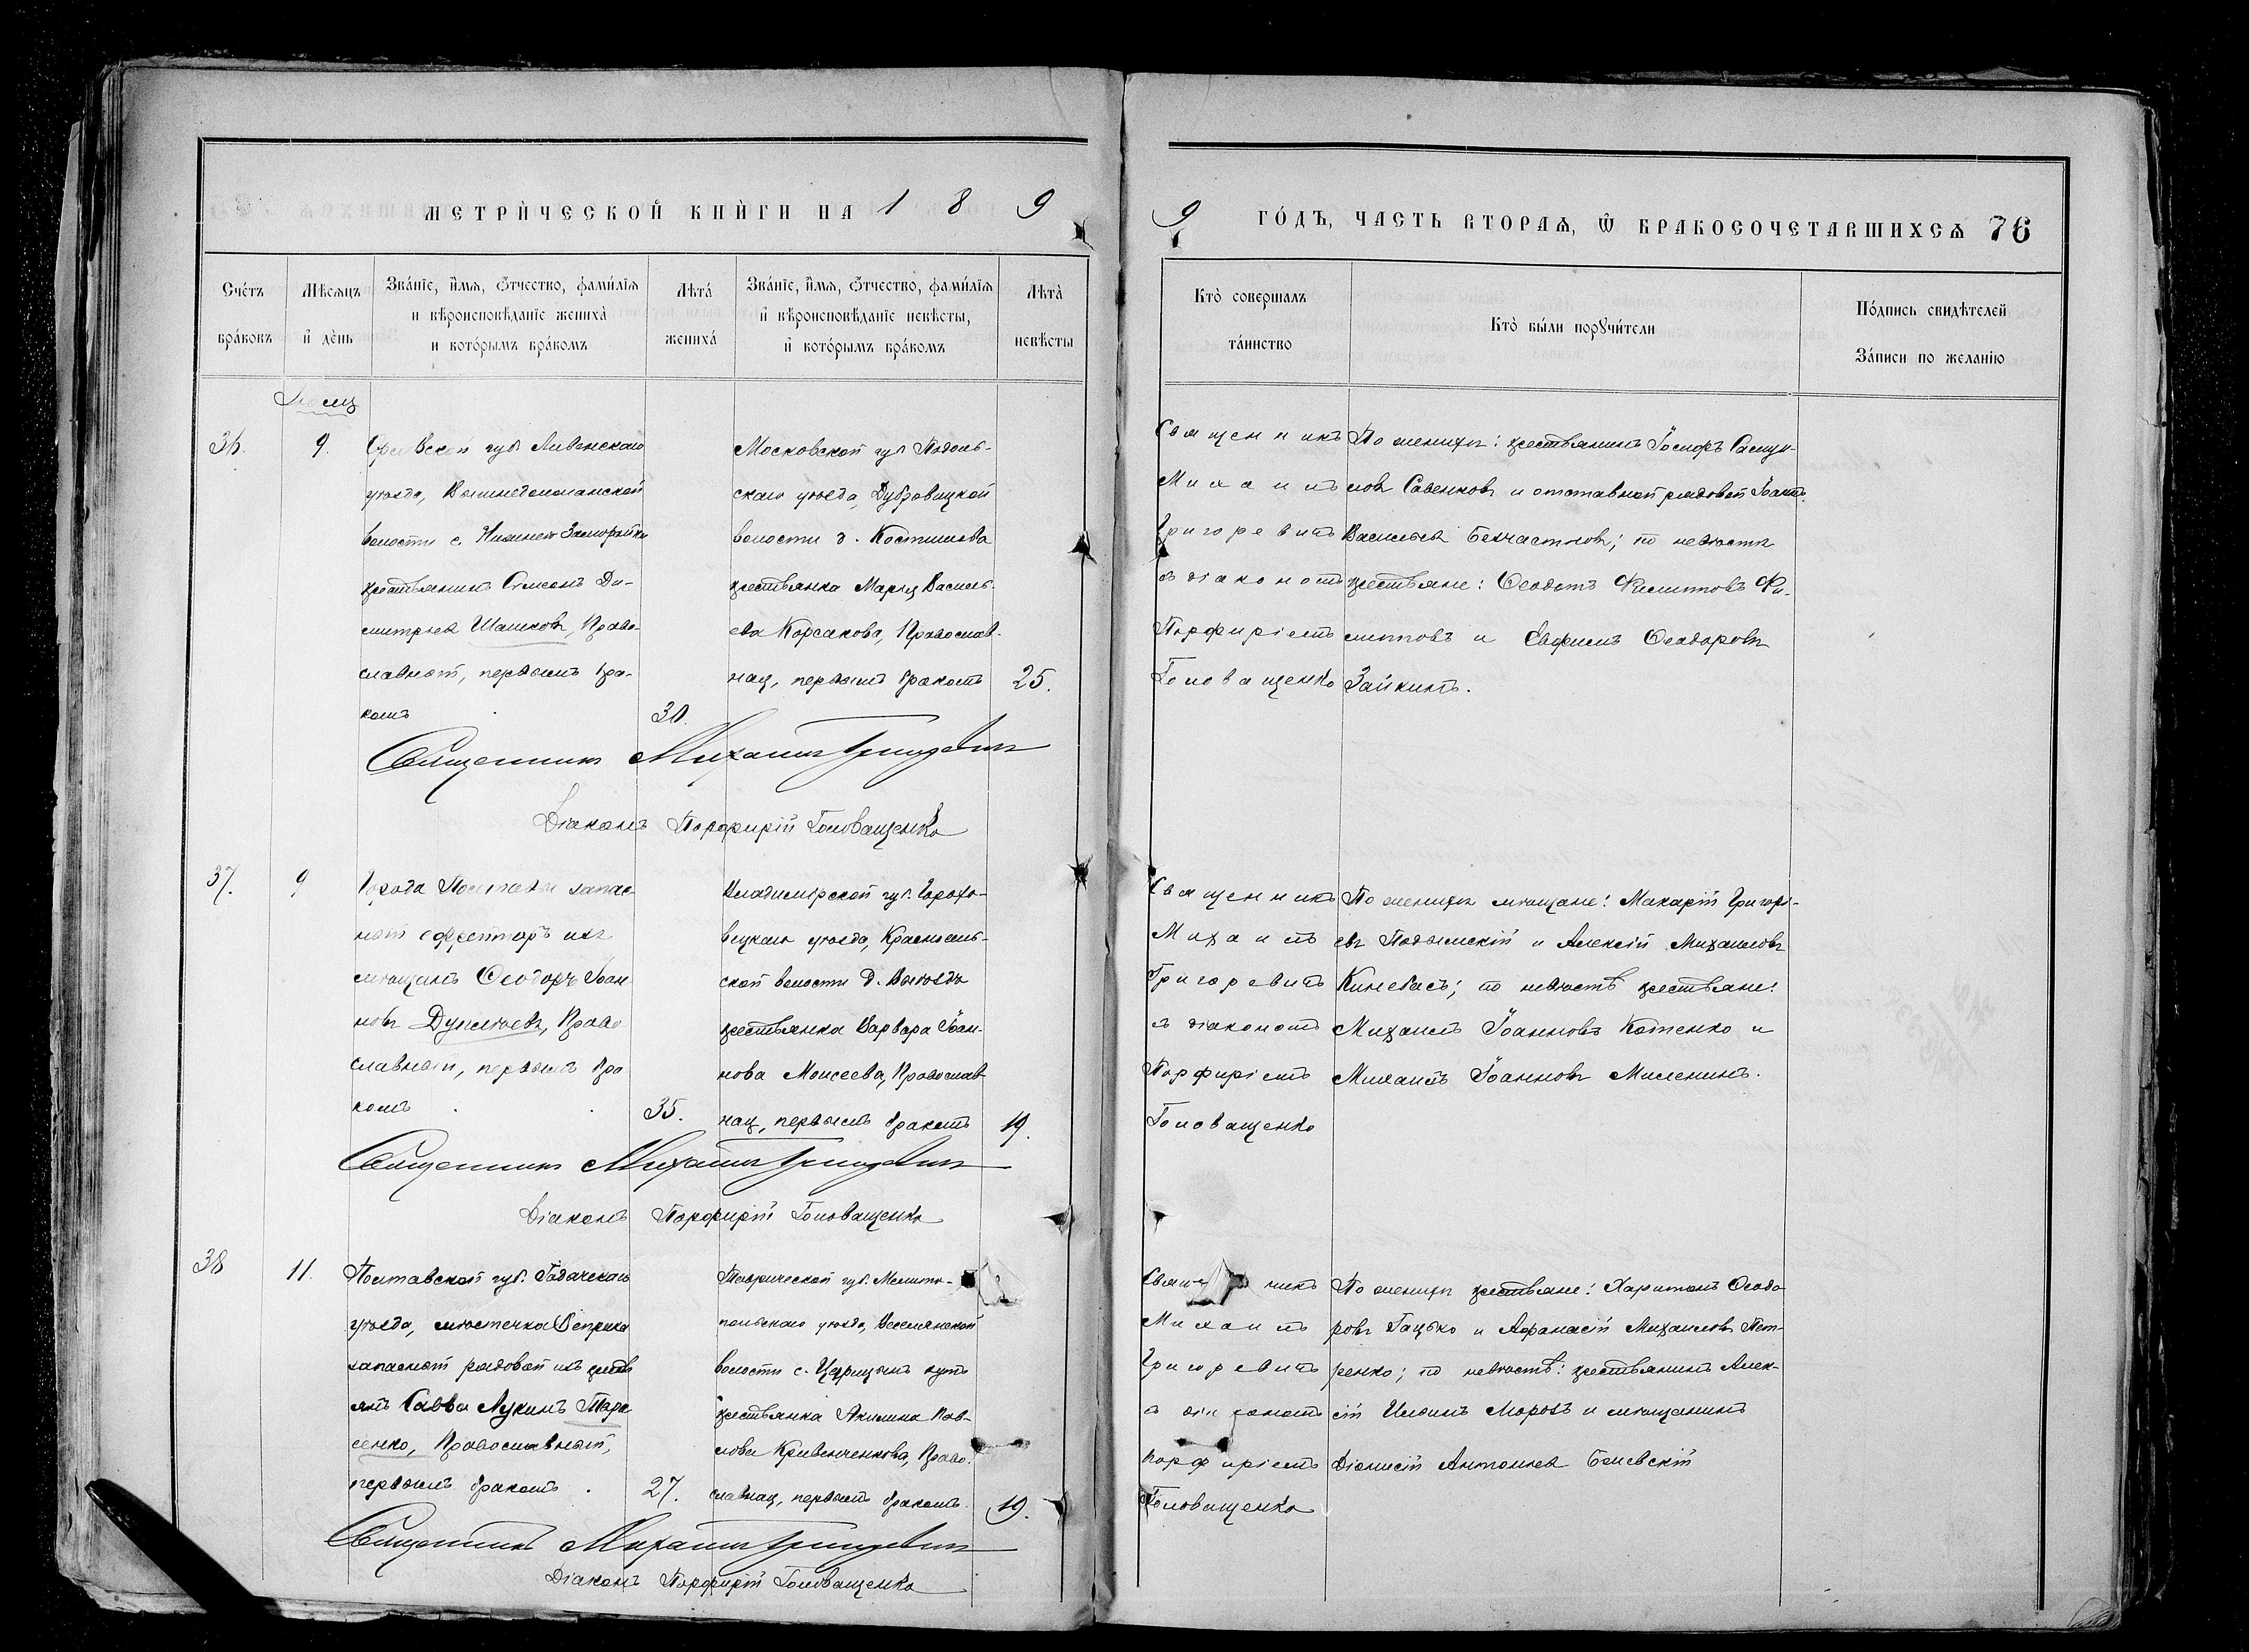 МЕТРИ́ЧЕСКОЙ КНИ́ГИ НА 1 8 9
9 ГО́ДЪ, ЧАСТЬ ВТОРАѦ, Ѿ БРАКОСОЧЕТАВШИХСѦ 76
Сче́тъ бра́ковъ
Мѣсѧцъ и҆ де́нь
Зва́нїе, и҆́мѧ, ѻ҆́тчество, фами́лїѧ
и вѣроисповѣ́данїе жениха̀
и кото́рымъ бра́комъ
Лѣта́ жениха́
Зва́нїе, и҆́мѧ, ѻ҆́тчество, фами́лїѧ
и҆ вѣроисповѣ́данїе невѣ́сты,
и҆ кото́рымъ бра́комъ
Лѣта̀ невѣ́сты
Кто̀ соверша́лъ
та́инство
Кто̀ бы́ли порꙋчи́тели
По́дпись свидѣ́телей
За́писи по жела́нїю
36. 9.
губ. Ливенскаго
уѣзда,
волости с. Нижней
крестьянинъ Симеонъ Ди-
митріевъ Шашковъ, Право-
славный, первымъ бра-
комъ 30.
Московской губ. Подоль-
скаго уѣзда, Дубровицкой
волости д.
крестьянка Марія Василь-
ева Корсакова, Православ-
ная, первымъ бракомъ 25.
Священникъ
Михаилъ
Григоревичъ
съ діакономъ
Порфиріемъ
Головащенко
По женихѣ: крестьянинъ Іосифъ Самуи-
ловъ Савенковъ и отставной рядовой Іоаннъ
Васильевъ Безчастновъ; по невѣстѣ
крестьяне: Ѳеодотъ Филипповъ Фи-
липповъ и Евфимъ Ѳеодоровъ
Зайкинъ.
Священникъ Михаилъ Григоревичъ
Діаконъ Порфирій Головащенко
37. 9
Города Полтавы запас-
ной ефрейторъ изъ
мѣщанъ Ѳеодоръ Іоан-
новъ Право
славный, первымъ бра
комъ 35.
Владимірской губ. Горохо-
вецкаго уѣзда, Красносель-
ской волости д.
крестьянка Варвара Іоан-
нова Моисеева, Православ-
ная, первымъ бракомъ 19.
Священникъ
Михаилъ
Григоревичъ
съ діакономъ
Порфиріемъ
Головащенко
По женихѣ мѣщане: Макарій Григорі-
евъ и Алексій Михаиловъ
по невѣстѣ крестьяне:
Михаилъ Іоанновъ Котенко и
Михаилъ Іоанновъ Миленинъ.
Священникъ Михаилъ Григоревичъ
Діаконъ Порфирій Головащенко
38 11.
Полтавской губ. Гадячскаго
уѣзда, мѣстечка Веприка
запасной рядовой изъ крестъ
янъ Савва Лукинъ Тара
сенко, Православный,
первымъ бракомъ . 27.
Таврической губ. Мелито-
польскаго уѣзда, Веселянской
волости с. Царицынъ кутъ
крестьянка Акилина Пав-
лова Кривенченкова, Право-
славная, первымъ бракомъ. 19.
Михаилъ
Григоревичъ
Порфиріемъ
Головащенко
По женихѣ крестьяне: Харитонъ Ѳеодо
ровъ Гацько и Аѳанасій Михаиловъ Пет-
ренко; по невѣстѣ: крестьянинъ Алек-
сій Ильинъ Морозъ и мѣщанинъ
Діонисій Антоніевъ
Священникъ Михаилъ Григоревичъ
Діаконъ Порфирій Головащенко